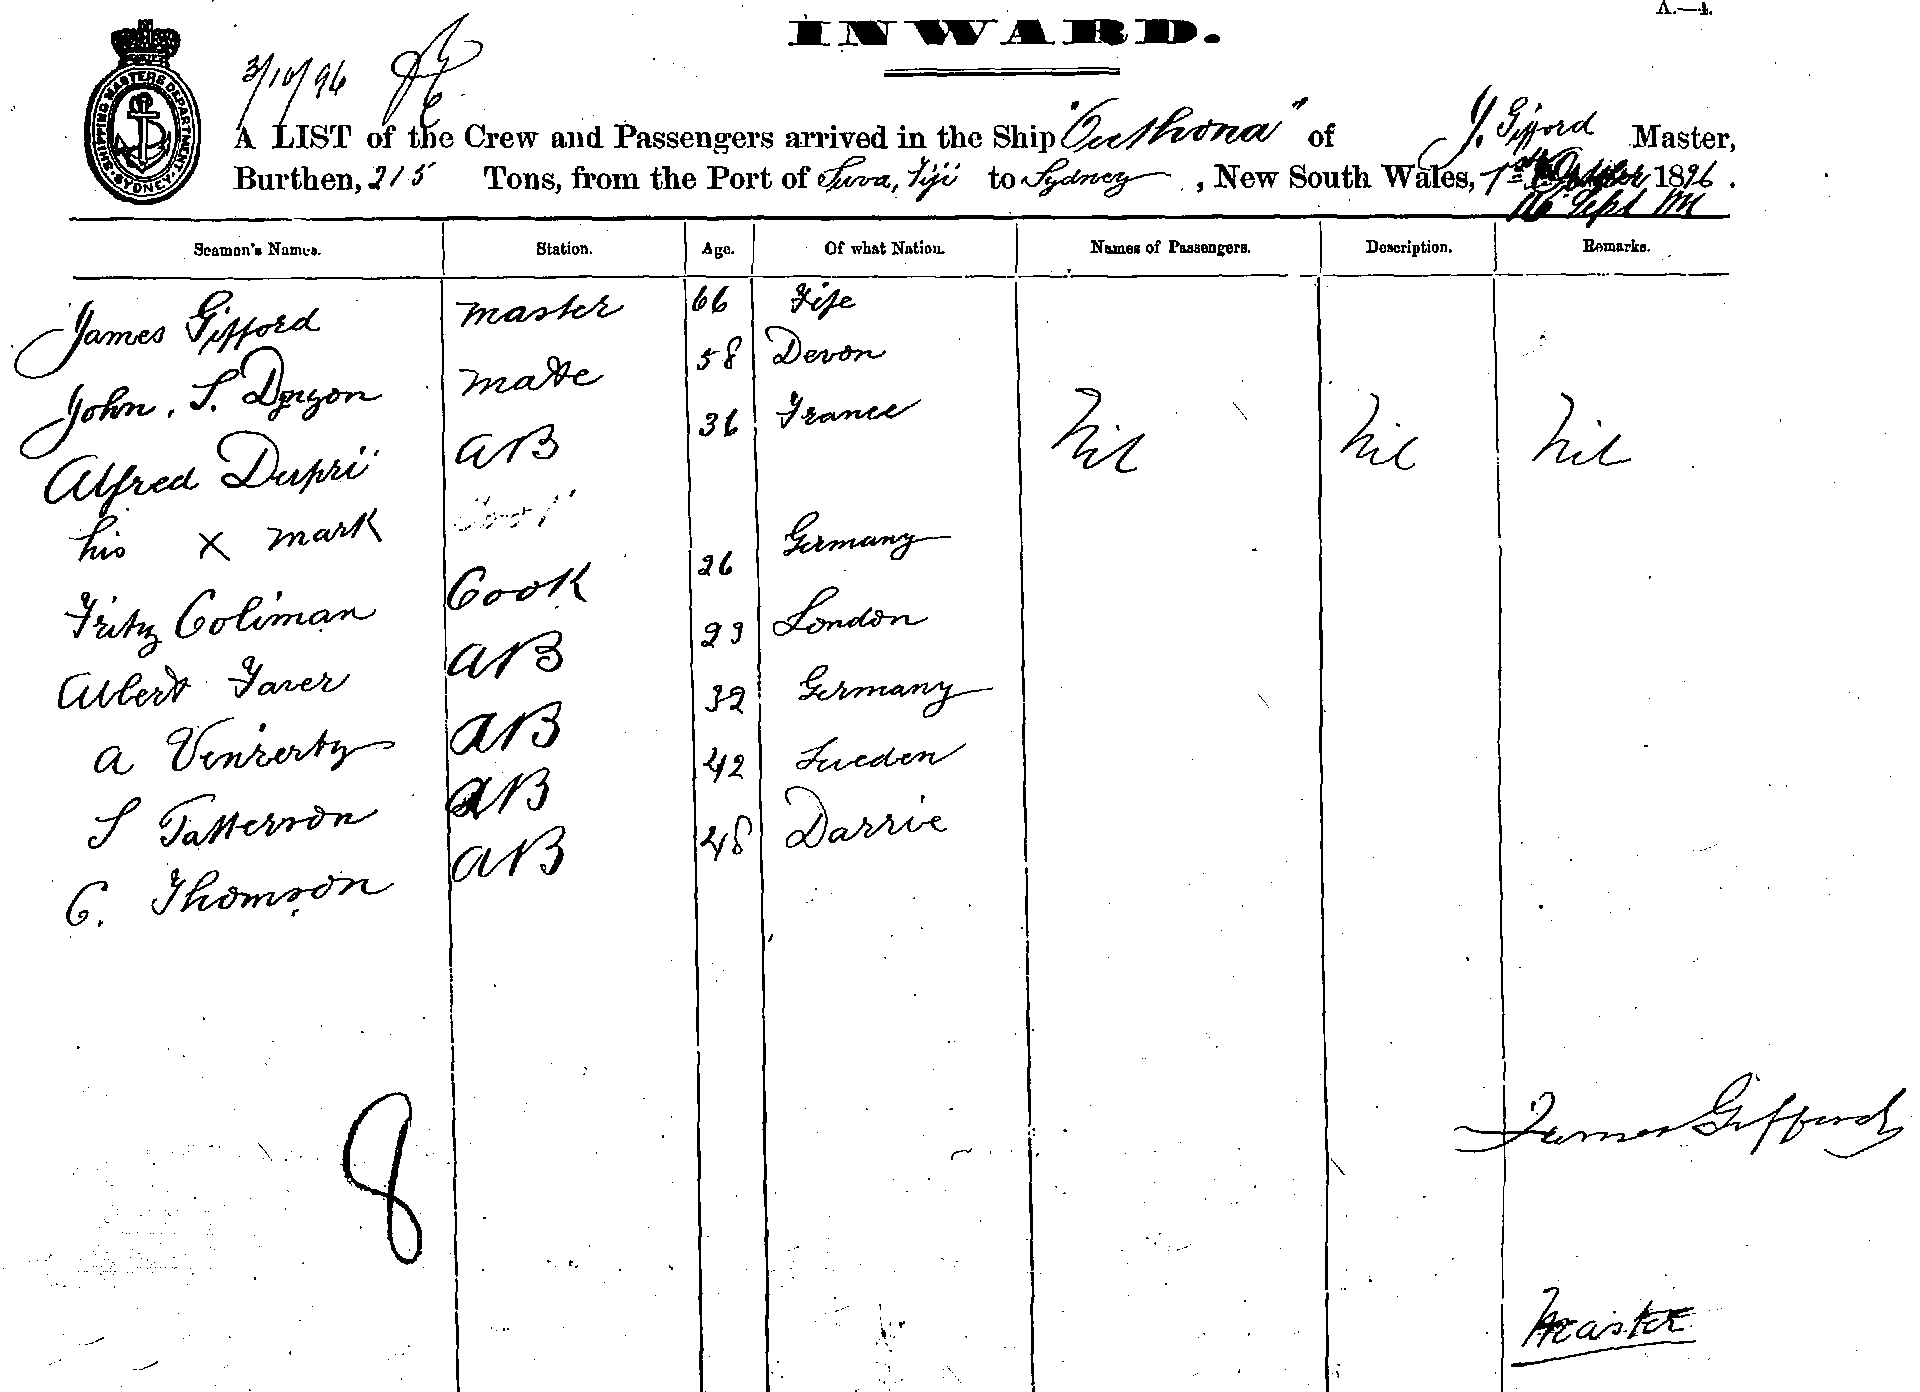 A.—4.
INWARD.
SHIPPING MASTERS DEPARTMENT SYDNEY
3/10/96
A LIST of the Crew and Passengers arrived in the Ship "Outhona" of J. Gifford Master,
Burthen, 215 Tons, from the Port of Suva, Fiji to Sydney, New South Wales, 1st October 1896.
16 Sept
Seamen's Names. Station. Age. Of what Nation. Names of Passengers. Description. Remarks.
James Gifford master 66 Fife
John. S. mate 58 Devon
Alfred Dupri AB 36 France Nil Nil Nil
his x mark
Fritz Coliman Cook 26 Germany
Albert Faver AB 23 London
A AB 32 Germany
S Patterson AB 42 Sweden
C. Thomson AB 48
8
James Gifford
Master